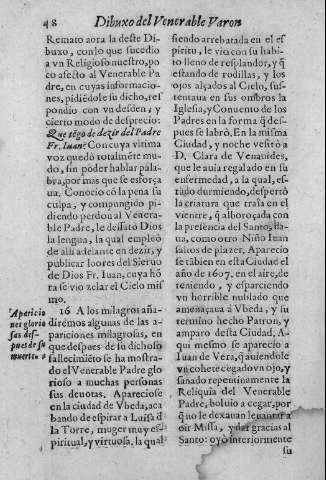 48 Dibuxo del Venerable Varon
Remato aora la deste Di-
buxo, con lo que sucedio
a vn Religioso nuestro, po
co afecto al Venerable Pa
dre, en cuyas informacio-
nes, pidiédole su dicho, res-
pondio con vn desden, y
cierto modo de desprecio:
Que tégo de dezir del Padre
Fr. Iuan? Con cuya vltima
voz quedò totalméte mu-
do, sin poder hablar pala-
bra, por mas que se esforça
ua. Conocio có la pena su
culpa, y compungido pi-
diendo perdon al Venera-
ble Padre, le desató Dios
la lengua, la qual empleò
de alli adelante en dezir, y
publicar loores del Sieruo
de Dios Fr. Iuan, cuya hó
ra se vio zelar el Cielo mis
mo.
Aparicio
nes glorio
sas des-
pues de su
muerte.
16 A los milagros aña-
dirémos algunas de las a-
pariciones milagrosas, en
que despues de su dichoso
fallecimiéto se ha mostra-
do el Venerable Padre glo
rioso a muchas personas
sus deuotas. Apareciose
en la ciudad de Vbeda, aca
bando de espirar a Luisa d̃
la Torre, muger muy es-
piritual, y virtuosa, la qual
siendo arrebatada en el es
piritu, le vio con su habi-
to lleno de resplandor, y q̃
estando de rodillas, y los
ojos alçados al Cielo, sus-
tentaua en sus ombros la
Iglesia, y Conuento de los
Padres en la forma q̃ des-
pues se labrò. En la misma
Ciudad, y noche visitò a
D. Clara de Venauides,
que le auia regalado en su
enfermedad, a la qual, es-
tãdo durmiendo, despertò
la criatura que traia en el
vientre, q̃ alboroçada con
la presencia del Santo, da-
ua, como otro Niño Iuan
saltos de plazer. Aparecio
se tãbien en esta ciudad el
año de 1607. en el aire, de
teniendo, y esparciendo
vn horrible nublado que
amenaçaua à Vbeda, y su
termino hecho Patron, y
amparo desta Ciudad. A-
qui mesmo se aparecio a
Iuan de Vera, q̃ auiendole
vn cohete cegado vn ojo, y
sanado repentinamente la
Reliquia del Venerable
Padre, boluio a cegar, por
q̃ no le dexauan leuantar a
oir Missa, y dar gracias al
Santo: oyò interiormente
su